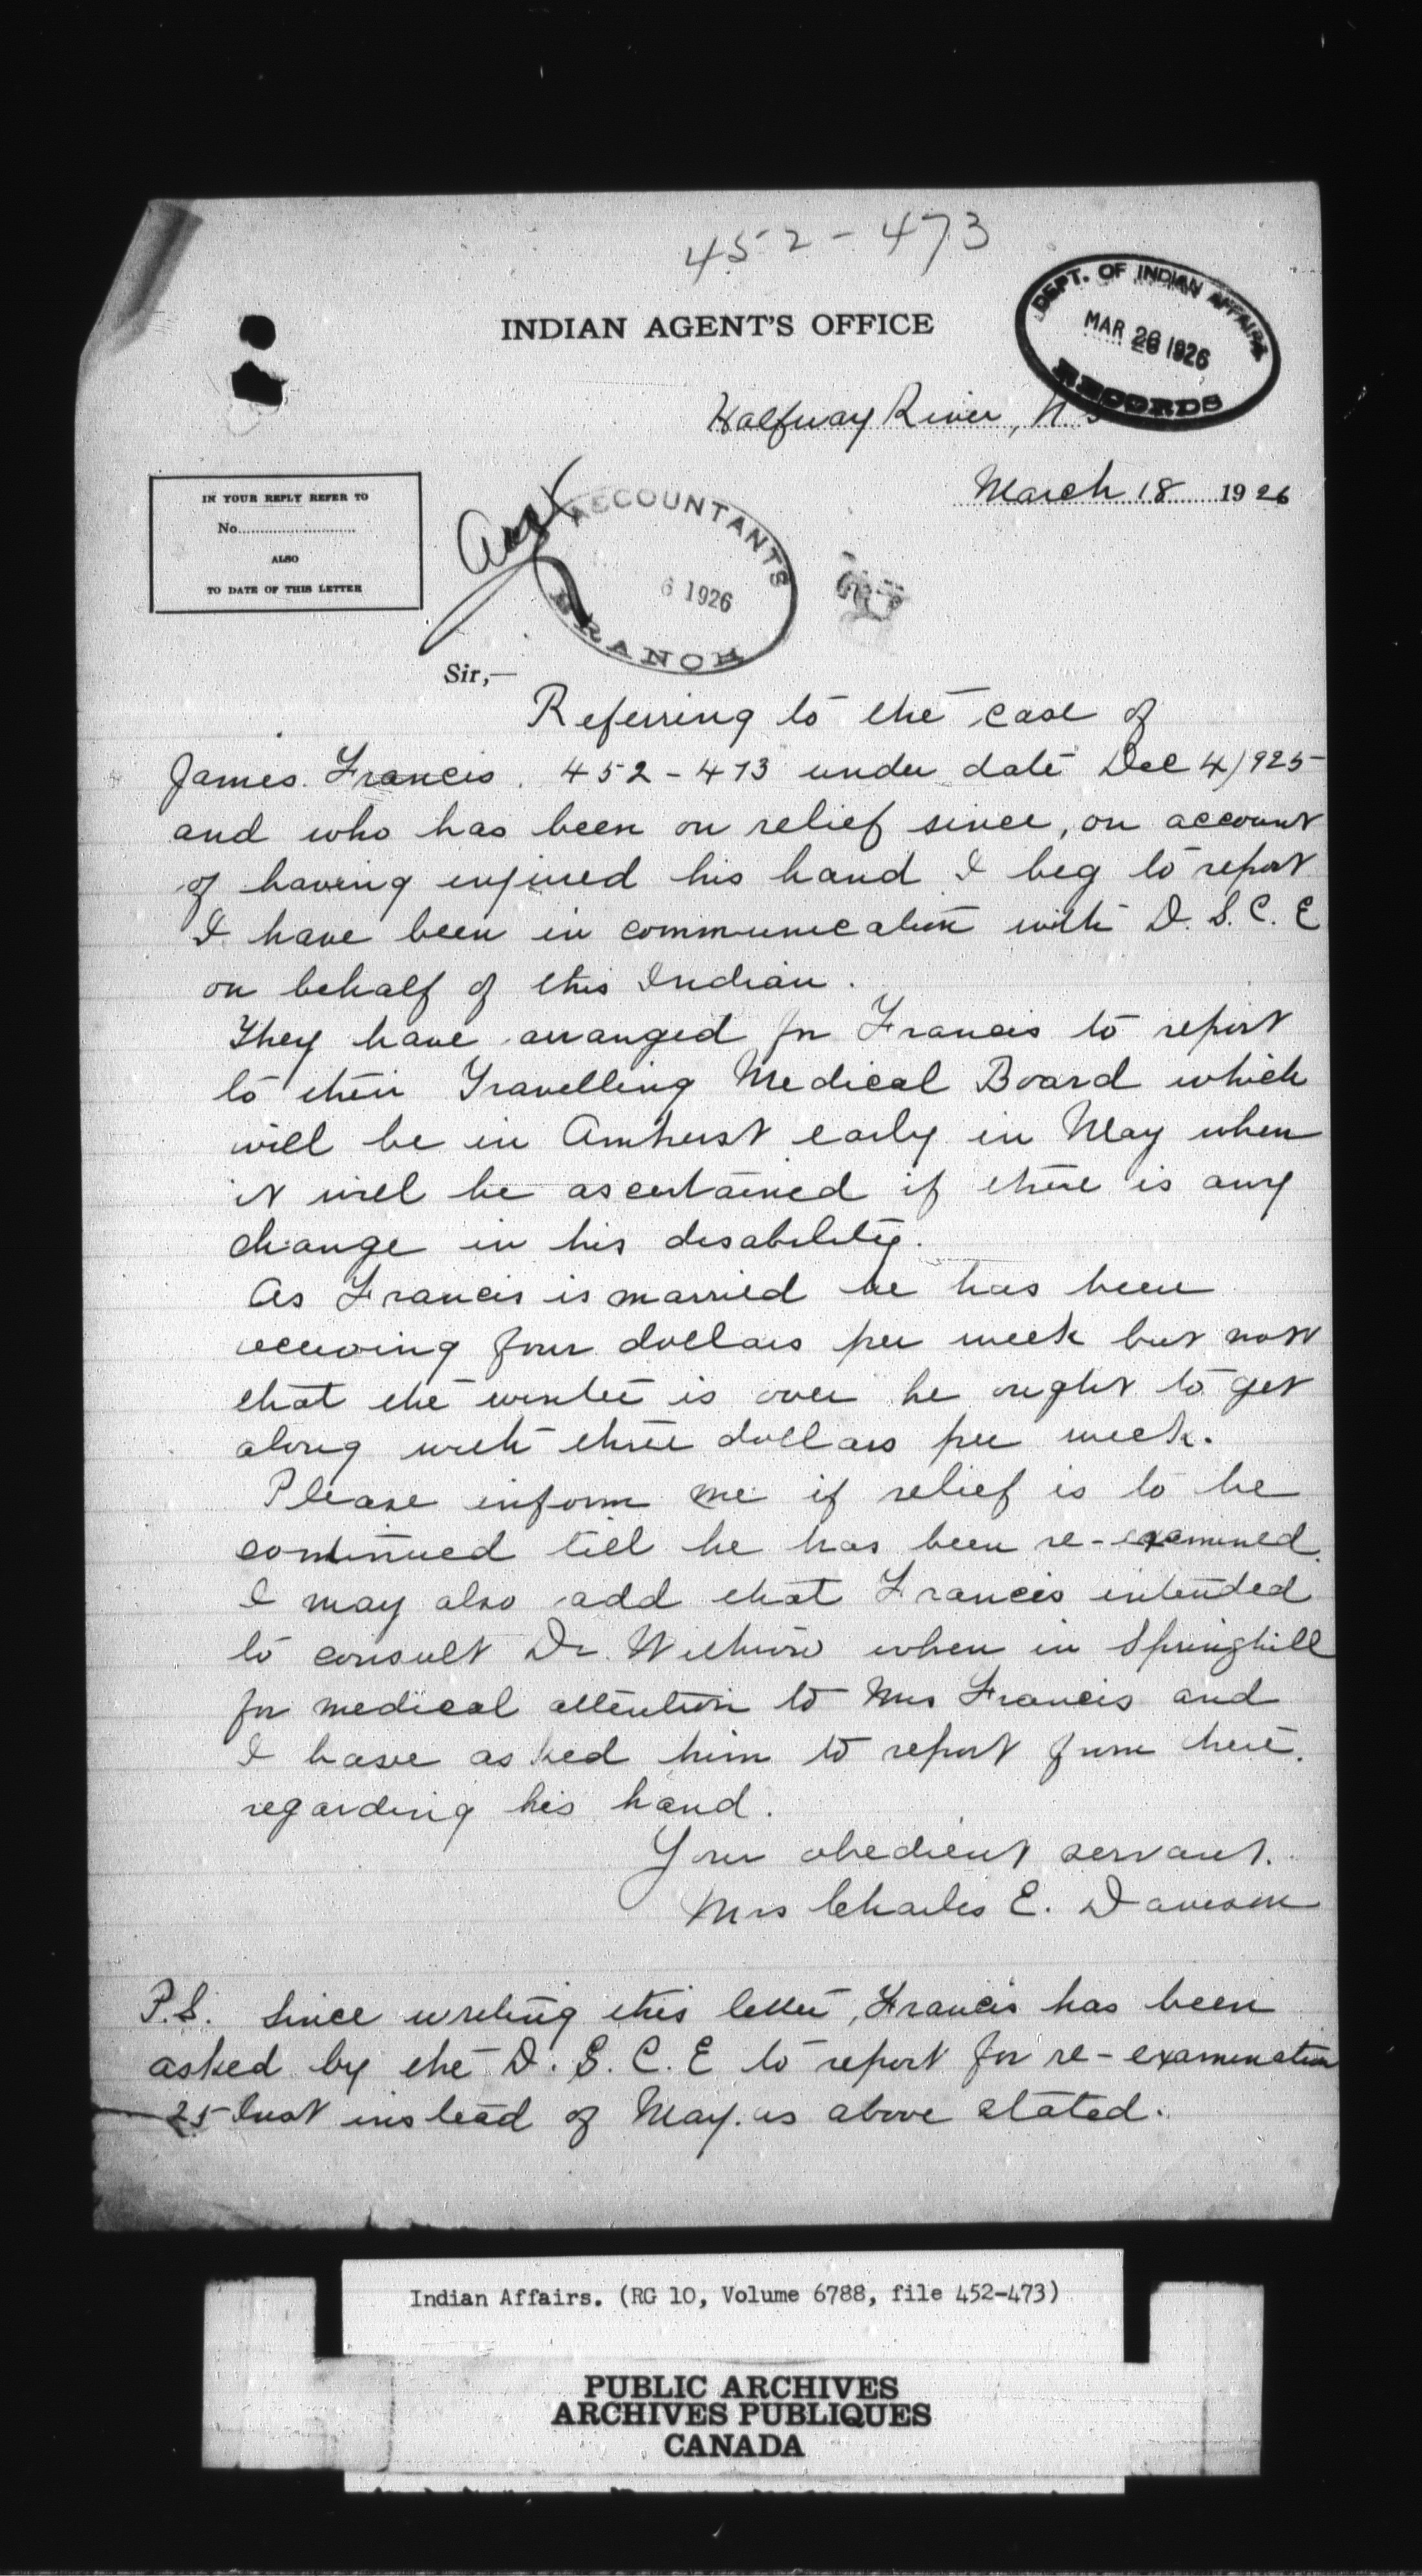 452-473
INDIAN AGENT'S OFFICE
DEPT. OF INDIAN AFFAIRS
MAR 26 1926
RECORDS
Halfway River, N.S
March 18 1926
IN YOUR REPLY REFER TO
No.
ALSO
TO DATE OF THIS LETTER
ACCOUNTANTS
6 1926
BRANCH
Sir,—
Referring to the case of
James Francis. 452-473 under date Dec 4/1925
and who has been on relief since, on account
of having injured his hand I beg to report
I have been in communication with D.S.C.E
on behalf of this Indian.
They have arranged for Francis to report
to their Travelling Medical Board which
will be in Amherst early in May when
it will be ascertained if there is any
change in his disability.
As Francis is married he has been
receiving four dollars per week but now
that the winter is over he ought to get
along with three dollars per week.
Please inform me if relief is to be
continued till he has been re-examined.
I may also add that Francis intended
to consult Dr. when in Springhill
for medical attention to Mrs Francis and
I have asked him to report from here.
regarding his hand.
Your obedient servant.
Mrs Charles E. Davison
P.S. Since writing this letter, Francis has been
asked by the D.S.C.E to report for re-examination
25 Inst instead of May. as above stated.
Indian Affairs. (RG 10, Volume 6788, file 452-473)
PUBLIC ARCHIVES
ARCHIVES PUBLIQUES
CANADA